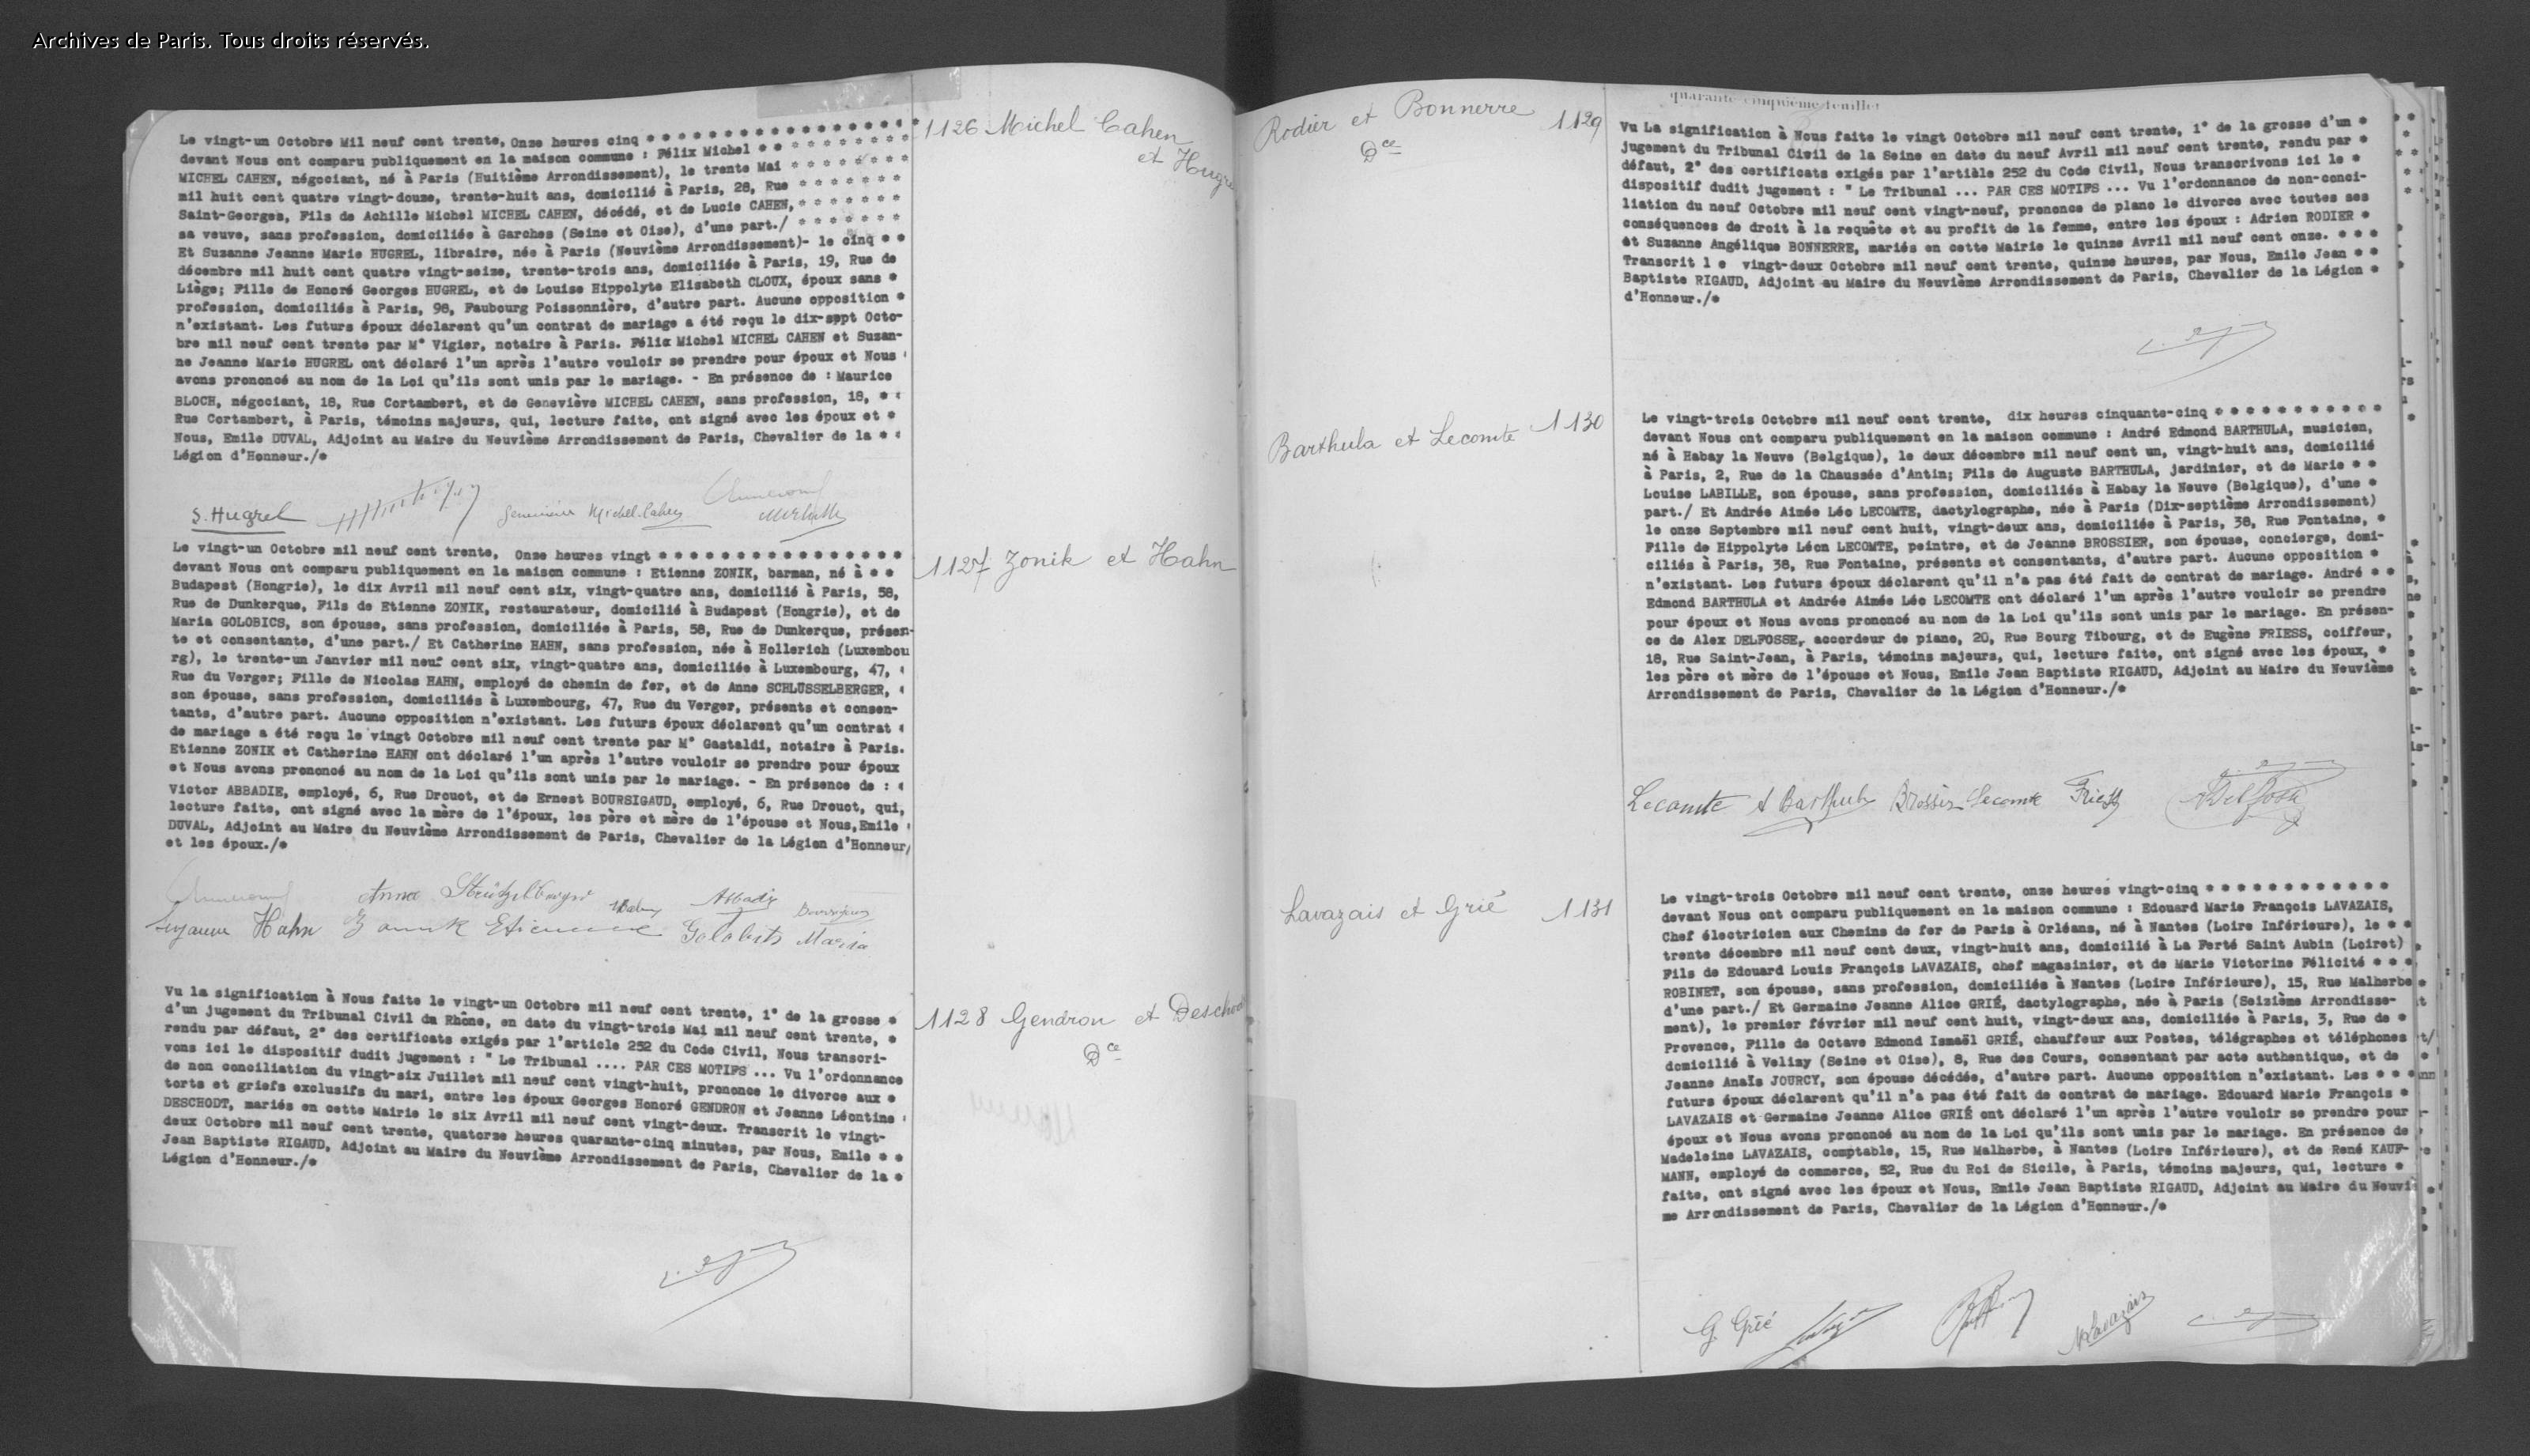 Archives de Paris. Tous droits réservés.
Le vingt-un Octobre Mil neuf cent trente, Onze heures cinq
devant Nous ont comparu publiquement en la maison commune : Félix Michel
MICHEL CAHEN, négociant, né à Paris (Huitième Arrondissement), le trente Mai
mil huit cent quatre vingt-douze, trente-huit ans, domicilié à Paris, 28, Rue
Saint-Georges, Fils de Achille Michel MICHEL CAHEN, décédé, et de Lucie CAHEN,
sa veuve, sans profession, domiciliée à Garches (Seine et Oise), d'une part./
Et Suzanne Jeanne Marie HUGREL, libraire, née à Paris (Neuvième Arrondissement)- le cinq
décembre mil huit cent quatre vingt-seize, trente-trois ans, domiciliée à Paris, 19, Rue de
Liège; Fille de Honoré Georges HUGREL, et de Louise Hippolyte Elisabeth CLOUX, époux sans
profession, domiciliés à Paris, 98, Faubourg Poissonnière, d'autre part. Aucune opposition
n'existant. Les futurs époux déclarent qu'un contrat de mariage a été reçu le dix-sept Octo-
bre mil neuf cent trente par M° Vigier, notaire à Paris. Félix Michel MICHEL CAHEN et Suzan-
ne Jeanne Marie HUGREL ont déclaré l'un après l'autre vouloir se prendre pour époux et Nous
avons prononcé au nom de la Loi qu'ils sont unis par le mariage. - En présence de : Maurice
BLOCH, négociant, 18, Rue Cortambert, et de Geneviève MICHEL CAHEN, sans profession, 18,
Rue Cortambert, à Paris, témoins majeurs, qui, lecture faite, ont signé avec les époux et
Nous, Emile DUVAL, Adjoint au Maire du Neuvième Arrondissement de Paris, Chevalier de la
Légion d'Honneur./
S. Hugrel
Geneviève Michel-Cahen
1126 Michel Cahen
et Hugre
Le vingt-un Octobre mil neuf cent trente, Onze heures vingt
devant Nous ont comparu publiquement en la maison commune : Etienne ZONIK, barman, né à
Budapest (Hongrie), le dix Avril mil neuf cent six, vingt-quatre ans, domicilié à Paris, 58,
Rue de Dunkerque, Fils de Etienne ZONIK, restaurateur, domicilié à Budapest (Hongrie), et de
Maria GOLOBICS, son épouse, sans profession, domiciliée à Paris, 58, Rue de Dunkerque, présen-
te et consentante, d'une part./ Et Catherine HAHN, sans profession, née à Hollerich (Luxembou
rg), le trente-un Janvier mil neuf cent six, vingt-quatre ans, domiciliée à Luxembourg, 47,
Rue du Verger; Fille de Nicolas HAHN, employé de chemin de fer, et de Anne SCHLUSSELBERGER,
son épouse, sans profession, domiciliés à Luxembourg, 47, Rue du Verger, présents et consen-
tants, d'autre part. Aucune opposition n'existant. Les futurs époux déclarent qu'un contrat
de mariage a été reçu le vingt Octobre mil neuf cent trente par M° Gastaldi, notaire à Paris.
Etienne ZONIK et Catherine HAHN ont déclaré l'un après l'autre vouloir se prendre pour époux
et Nous avons prononcé au nom de la Loi qu'ils sont unis par le mariage. - En présence de :
Victor ABBADIE, employé, 6, Rue Drouot, et de Ernest BOURSIGAUD, employé, 6, Rue Drouot, qui,
lecture faite, ont signé avec la mère de l'époux, les père et mère de l'épouse et Nous, Emile
DUVAL, Adjoint au Maire du Neuvième Arrondissement de Paris, Chevalier de la Légion d'Honneur,
et les époux./
Anna
Abbadie
Hahn Zonik Etienne Golobits Maria
1127 Zonik et Hahn
Vu la signification à Nous faite le vingt-un Octobre mil neuf cent trente, 1° de la grosse
d'un jugement du Tribunal Civil du Rhône, en date du vingt-trois Mai mil neuf cent trente,
rendu par défaut, 2° des certificats exigés par l'article 252 du Code Civil, Nous transcri-
vons ici le dispositif dudit jugement : " Le Tribunal .... PAR CES MOTIFS ... Vu l'ordonnance
de non conciliation du vingt-six Juillet mil neuf cent vingt-huit, prononce le divorce aux
torts et griefs exclusifs du mari, entre les époux Georges Honoré GENDRON et Jeanne Léontine
DESCHODT, mariés en cette Mairie le six Avril mil neuf cent vingt-deux. Transcrit le vingt-
deux Octobre mil neuf cent trente, quatorze heures quarante-cinq minutes, par Nous, Emile
Jean Baptiste RIGAUD, Adjoint au Maire du Neuvième Arrondissement de Paris, Chevalier de la
Légion d'Honneur./
1128 Gendron et Deschod
Dce
Rodier et Bonnerre 1129
Dce
quarante cinquième feuillet
Vu La signification à Nous faite le vingt Octobre mil neuf cent trente, 1° de la grosse d'un
jugement du Tribunal Civil de la Seine en date du neuf Avril mil neuf cent trente, rendu par
défaut, 2° des certificats exigés par l'article 252 du Code Civil, Nous transcrivons ici le
dispositif dudit jugement : " Le Tribunal ... PAR CES MOTIFS ... Vu l'ordonnance de non-conci-
liation du neuf Octobre mil neuf cent vingt-neuf, prononce de plano le divorce avec toutes ses
conséquences de droit à la requête et au profit de la femme, entre les époux : Adrien RODIER
et Suzanne Angélique BONNERRE, mariés en cette Mairie le quinze Avril mil neuf cent onze.
Transcrit l e vingt-deux Octobre mil neuf cent trente, quinze heures, par Nous, Emile Jean
Baptiste RIGAUD, Adjoint au Maire du Neuvième Arrondissement de Paris, Chevalier de la Légion
d'Honneur./
Barthula et Lecomte 1130
Le vingt-trois Octobre mil neuf cent trente, dix heures cinquante-cinq
devant Nous ont comparu publiquement en la maison commune : André Edmond BARTHULA, musicien,
né à Habay la Neuve (Belgique), le deux décembre mil neuf cent un, vingt-huit ans, domicilié
à Paris, 2, Rue de la Chaussée d'Antin; Fils de Auguste BARTHULA, jardinier, et de Marie
Louise LABILLE, son épouse, sans profession, domiciliés à Habay la Neuve (Belgique), d'une
part./ Et Andrée Aimée Léo LECOMTE, dactylographe, née à Paris (Dix-septième Arrondissement)
le onze Septembre mil neuf cent huit, vingt-deux ans, domiciliée à Paris, 38, Rue Fontaine,
Fille de Hippolyte Léon LECOMTE, peintre, et de Jeanne BROSSIER, son épouse, concierge, domi-
ciliés à Paris, 38, Rue Fontaine, présents et consentants, d'autre part. Aucune opposition
n'existant. Les futurs époux déclarent qu'il n'a pas été fait de contrat de mariage. André
Edmond BARTHULA et Andrée Aimée Léo LECOMTE ont déclaré l'un après l'autre vouloir se prendre
pour époux et Nous avons prononcé au nom de la Loi qu'ils sont unis par le mariage. En présen-
ce de Alex DELFOSSE, accordeur de piano, 20, Rue Bourg Tibourg, et de Eugène FRIESS, coiffeur,
18, Rue Saint-Jean, à Paris, témoins majeurs, qui, lecture faite, ont signé avec les époux,
les père et mère de l'épouse et Nous, Emile Jean Baptiste RIGAUD, Adjoint au Maire du Neuvième
Arrondissement de Paris, Chevalier de la Légion d'Honneur./
Lecomte A Barthula Brossier Lecomte Friess ADelfosse
Lavazais et Grié 1131
Le vingt-trois Octobre mil neuf cent trente, onze heures vingt-cinq
devant Nous ont comparu publiquement en la maison commune : Edouard Marie François LAVAZAIS,
Chef électricien aux Chemins de fer de Paris à Orléans, né à Nantes (Loire Inférieure), le
trente décembre mil neuf cent deux, vingt-huit ans, domicilié à La Ferté Saint Aubin (Loiret)
Fils de Edouard Louis François LAVAZAIS, chef magasinier, et de Marie Victorine Félicité
ROBINET, son épouse, sans profession, domiciliés à Nantes (Loire Inférieure), 15, Rue Malherbe
d'une part./ Et Germaine Jeanne Alice GRIÉ, dactylographe, née à Paris (Seizième Arrondisse-
ment), le premier février mil neuf cent huit, vingt-deux ans, domiciliée à Paris, 3, Rue de
Provence, Fille de Octave Edmond Ismaël GRIÉ, chauffeur aux Postes, télégraphes et téléphones
domicilié à Velizy (Seine et Oise), 8, Rue des Cours, consentant par acte authentique, et de
Jeanne Anaïs JOURCY, son épouse décédée, d'autre part. Aucune opposition n'existant. Les
futurs époux déclarent qu'il n'a pas été fait de contrat de mariage. Edouard Marie François
LAVAZAIS et Germaine Jeanne Alice GRIÉ ont déclaré l'un après l'autre vouloir se prendre pour
époux et Nous avons prononcé au nom de la Loi qu'ils sont unis par le mariage. En présence de
Madeleine LAVAZAIS, comptable, 15, Rue Malherbe, à Nantes (Loire Inférieure), et de René KAUF-
MANN, employé de commerce, 52, Rue du Roi de Sicile, à Paris, témoins majeurs, qui, lecture
faite, ont signé avec les époux et Nous, Emile Jean Baptiste RIGAUD, Adjoint au Maire du Neuvi
me Arrondissement de Paris, Chevalier de la Légion d'Honneur./
G. Grié
MLavazais